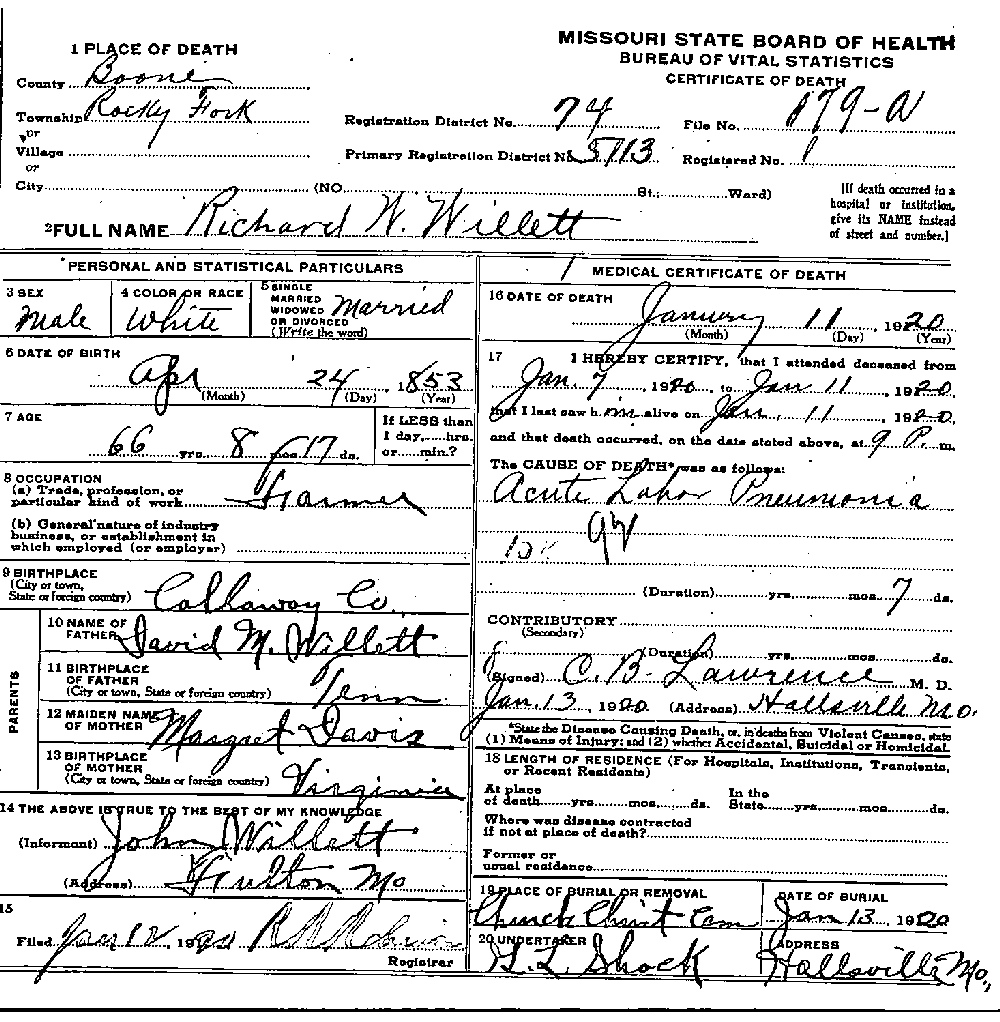 MISSOURI STATE BOARD OF HEALTH
BUREAU OF VITAL STATISTICS
CERTIFICATE OF DEATH
1 PLACE OF DEATH
County Boone
Township Rocky Fork
or
Village
or
City (NO. St.; Ward)
Registration District No. 74 File No. 179-A
Primary Registration District No. 5713 Registered No. 1
[If death occurred in a
hospital or institution,
give its NAME instead
of street and number.]
2 FULL NAME Richard W. Willett
PERSONAL AND STATISTICAL PARTICULARS
3 SEX
Male
4 COLOR OR RACE
White
5 SINGLE
MARRIED
WIDOWED
OR DIVORCED
(Write the word)
Married
6 DATE OF BIRTH
Apr 24, 1853
(Month) (Day) (Year)
7 AGE
66 yrs. 8 mos. 17 ds.
If LESS than
1 day, hrs.
or min.?
8 OCCUPATION
(a) Trade, profession, or
particular kind of work Farmer
(b) General nature of industry
business, or establishment in
which employed (or employer)
9 BIRTHPLACE
(City or town,
State or foreign country) Callaway Co.
PARENTS
10 NAME OF
FATHER David M. Willett
11 BIRTHPLACE
OF FATHER
(City or town, State or foreign country) Tenn
12 MAIDEN NAME
OF MOTHER Margret Davis
13 BIRTHPLACE
OF MOTHER
(City or town, State or foreign country) Virginia
14 THE ABOVE IS TRUE TO THE BEST OF MY KNOWLEDGE
(Informant) John Willett
(Address) Fulton Mo
15
Filed Jan 12, 1920
Registrar
MEDICAL CERTIFICATE OF DEATH
16 DATE OF DEATH
January 11, 1920
(Month) (Day) (Year)
17 I HEREBY CERTIFY, that I attended deceased from
Jan. 7, 1920, to Jan 11, 1920,
that I last saw h im alive on Jan. 11, 1920,
and that death occurred, on the date stated above, at 9 P. m.
The CAUSE OF DEATH* was as follows:
Acute Lobar Pneumonia
(Duration) yrs. mos. 7 ds.
CONTRIBUTORY
(Secondary)
(Duration) yrs. mos. ds.
(Signed) C. B. Lawrence M. D.
Jan. 13, 1920 (Address) Hallsville Mo.
*State the Disease Causing Death, or, in deaths from Violent Causes, state
(1) Means of Injury; and (2) whether Accidental, Suicidal or Homicidal.
18 LENGTH OF RESIDENCE (For Hospitals, Institutions, Transients,
or Recent Residents)
At place In the
of death yrs. mos. ds. State yrs. mos. ds.
Where was disease contracted
if not at place of death?
Former or
usual residence
19 PLACE OF BURIAL OR REMOVAL
Church Christ Cem
DATE OF BURIAL
Jan 13 1920
20 UNDERTAKER
Shock
ADDRESS
Hallsville Mo.,